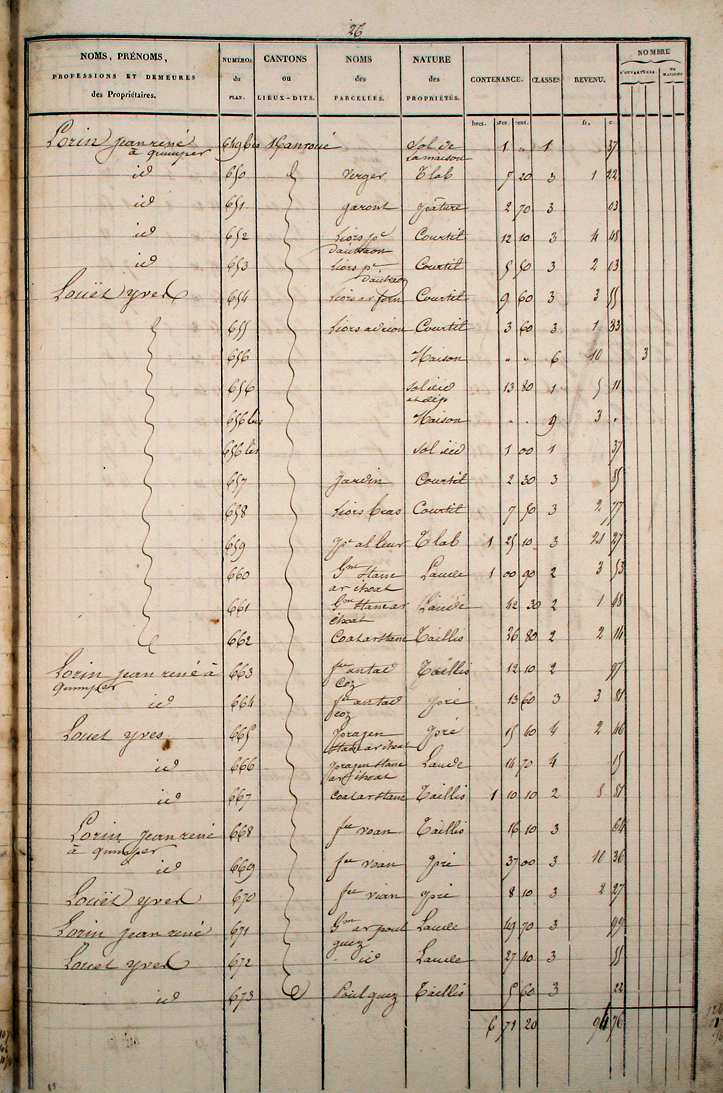 26
NOMS, PRÉNOMS, PROFESSIONS ET DEMEURES des Propriétaires. NUMÉROS du PLAN. CANTONS ou LIEUX-DITS. NOMS des PARCELLES. NATURE des PROPRIÉTÉS. CONTENANCE. CLASSES. REVENU. NOMBRE D'OUVERTURES. DE MAISONS
hect. ares. cent. fr. c.
Lorin jean rené à quimper 649 bis Sol de la maison 1 " 1 37
id 650 Verger T lab 7 20 3 1 22
id 651 garent pâture 2 70 3 13
id 652 liors pce Courtil 12 10 3 4 48
id 653 liors pce Courtil 5 50 3 2 03
Louët yves 654 liors ar forn Courtil 9 60 3 3 55
655 liors Courtil 3 60 3 1 33
656 Maison " " 6 10 3
656 sol id 13 80 1 5 11
656 bis Maison . . 9 3 .
656 bis sol id 1 00 1 37
657 jardin Courtil 2 30 3 85
658 liors bras Courtil 7 50 3 2 77
659 pc al leur T lab 1 25 10 3 21 27
660 Gme stane ar c'hoat Lande 1 00 90 2 3 53
661 Gme stane ar c'hoat Lande 42 30 2 1 48
662 Coat ar stane Taillis 26 80 2 2 14
Lorin jean rené à quimper 663 coz Taillis 12 10 2 97
id 664 coz pré 13 60 3 3 81
Louet yves 665 prajen stane ar c'hoat pré 15 40 4 2 46
id 666 prajen stane ar c'hoat Lande 14 70 4 15
id 667 coat ar stane Taillis 1 10 10 2 8 81
Lorin jean rené à quimper 668 voan Taillis 16 10 3 64
id 669 voan pré 37 00 3 10 36
Louët yves 670 pré 8 10 3 2 27
Lorin jean rené 671 Gme ar poul guez Lande 49 70 3 99
Louet yves 672 id Lande 27 40 3 55
id 673 Poul guez Taillis 5 60 3 22
6 71 20 94 76